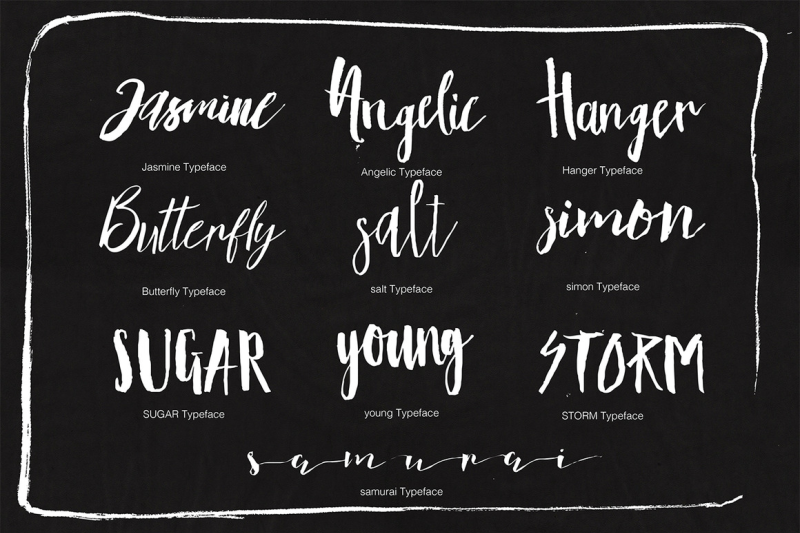 Jasmine Angelic Hanger
Jasmine Typeface Angelic Typeface Hanger Typeface
Butterfly salt simon
Butterfly Typeface salt Typeface simon Typeface
SUGAR young STORM
SUGAR Typeface young Typeface STORM Typeface
samurai
samurai Typeface